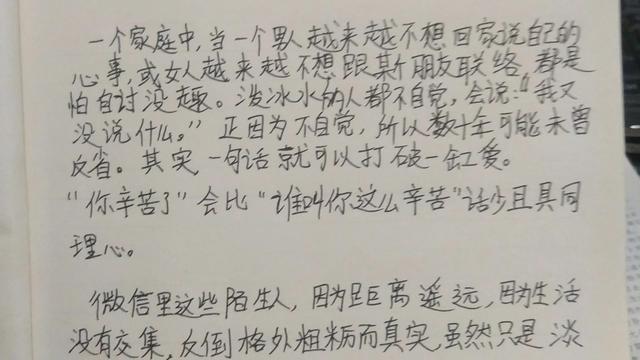 一个家庭中,当一个男人越来越不想回家说自己的
心事,或女人越来越不想跟某朋友联络,都是
怕自讨没趣。泼冰水的人都不自觉,会说:“我又
没说什么。”正因为不自觉,所以数十年可能未曾
反省。其实一句话就可以打破一缸爱。
“你辛苦了”会比“谁叫你这么辛苦”话少且具同
理心。
微信里这些陌生人,因为距离遥远,因为生活
没有交集,反倒格外粗粝而真实,虽然只是淡